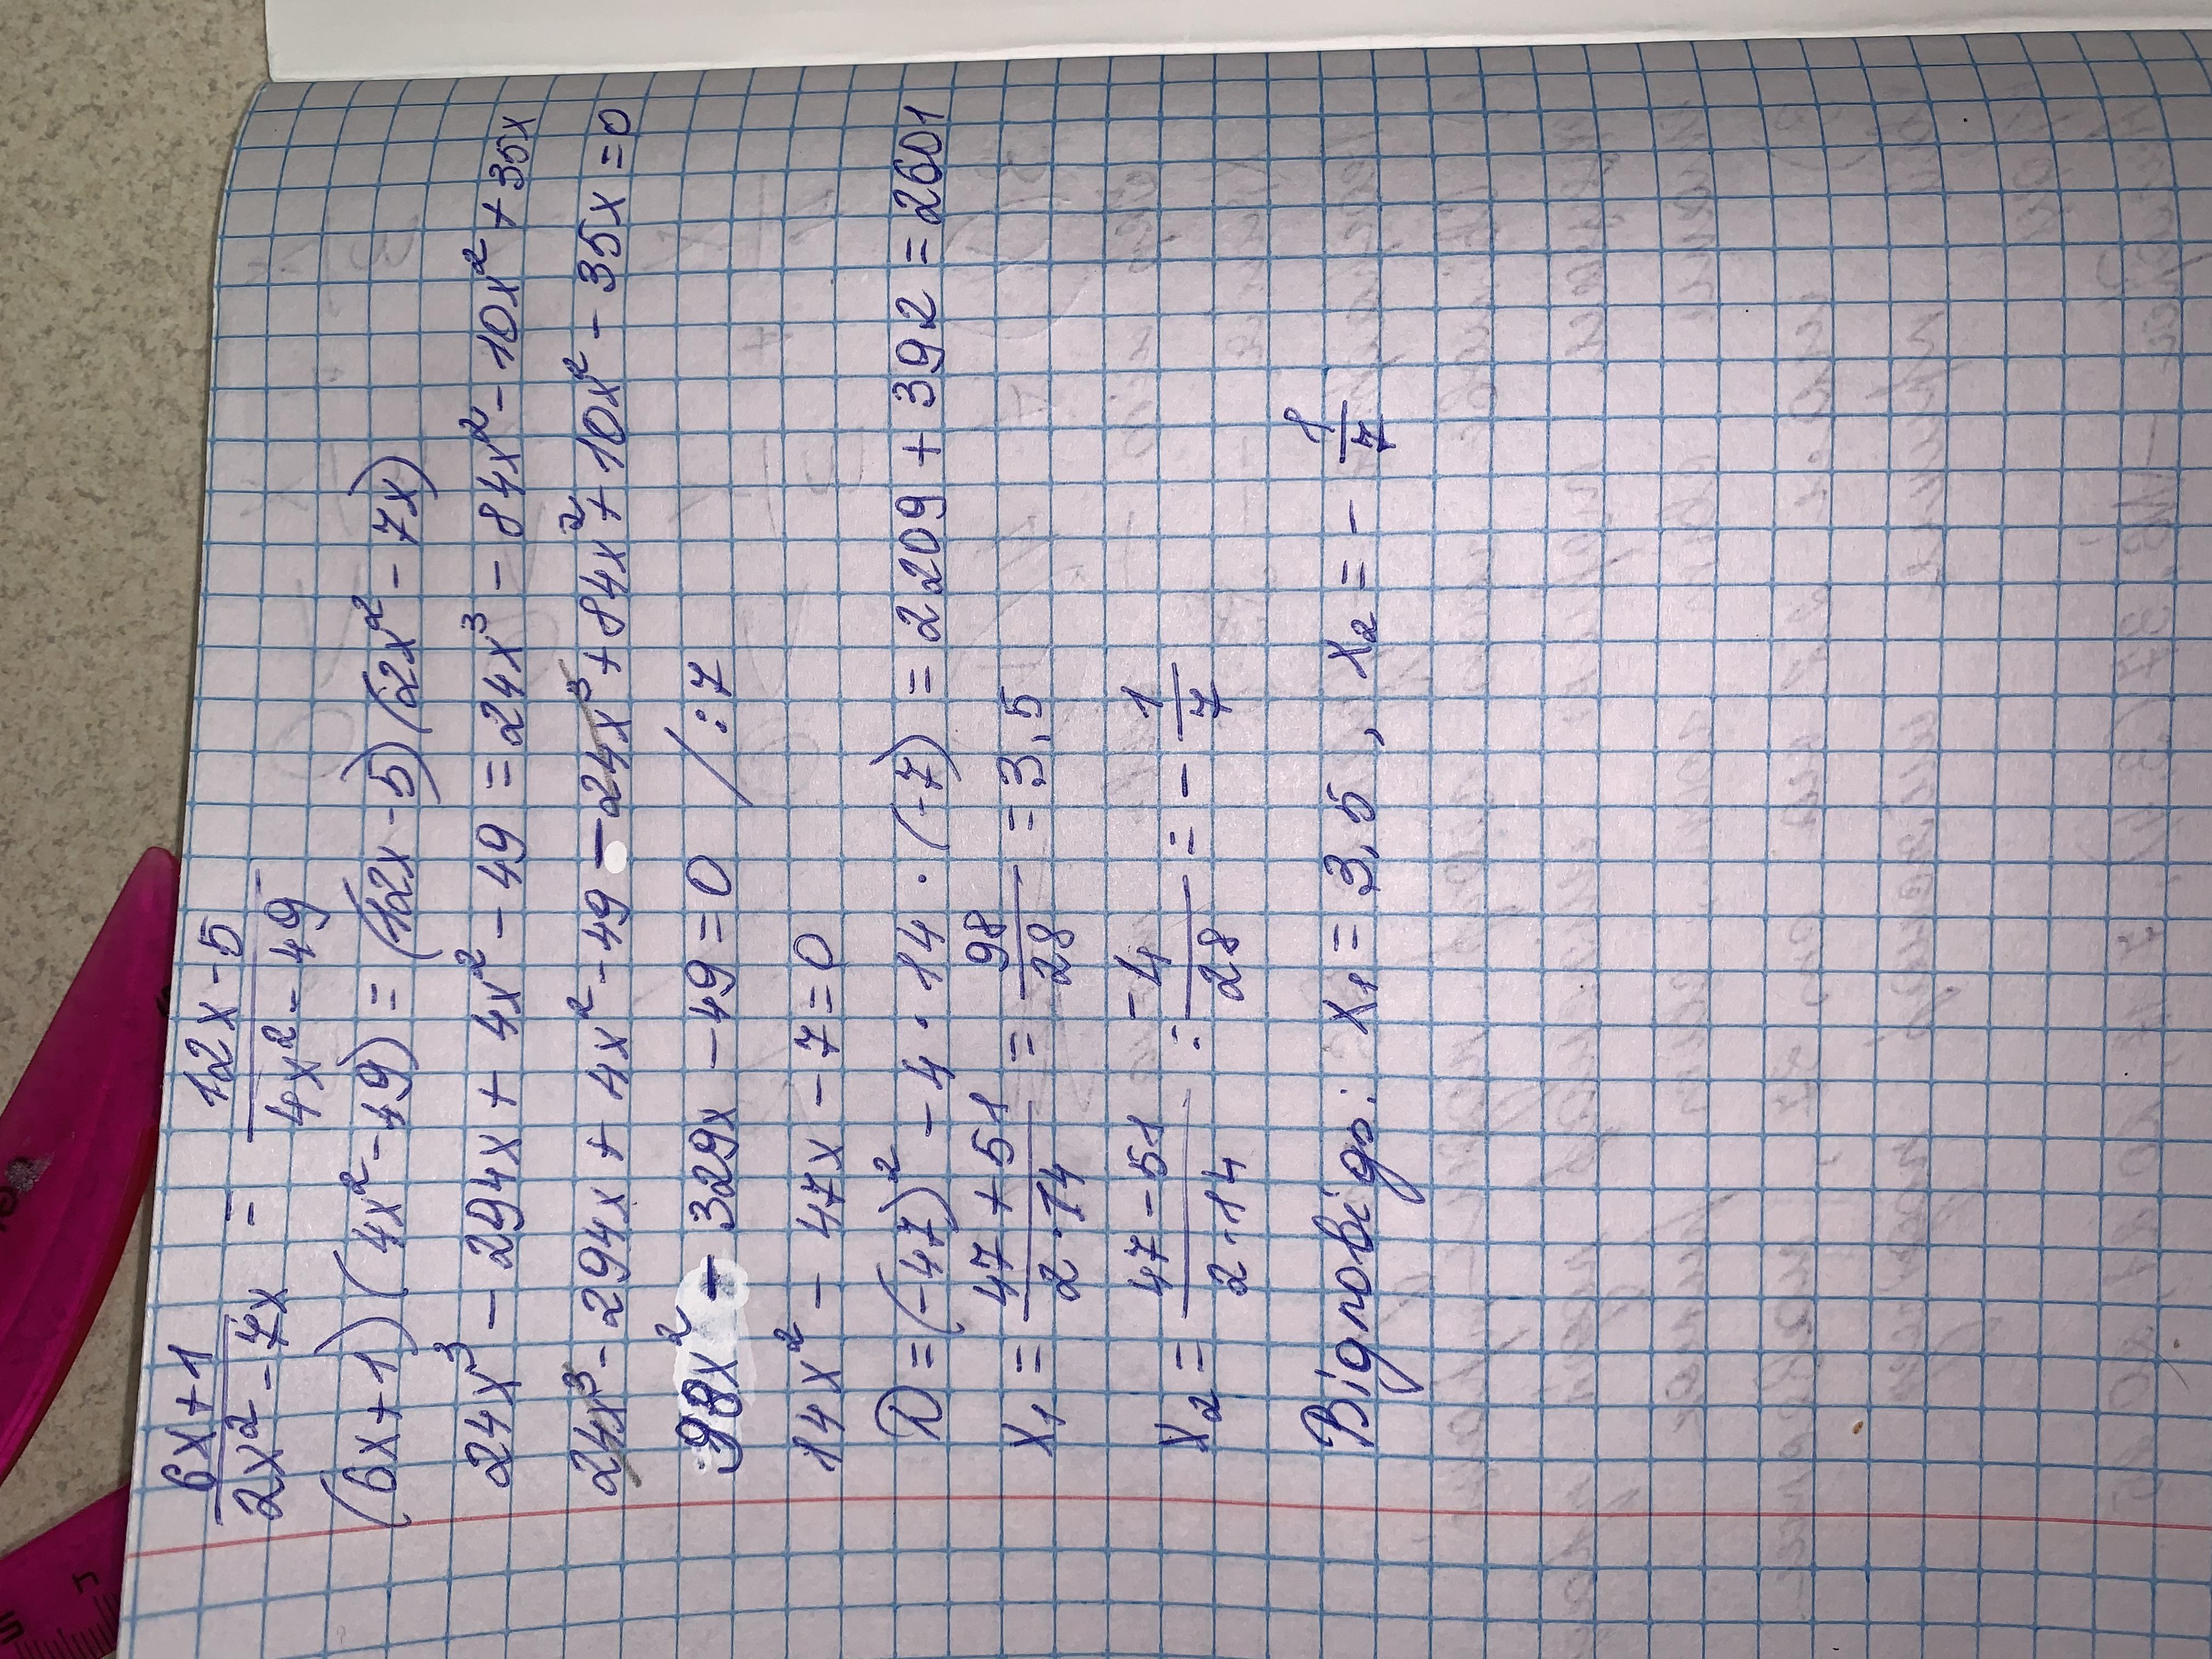 (6x+1)/(2x² - 7x) = (12x - 5)/(4x² - 49)
(6x+1)(4x² - 49) = (12x - 5)(2x² - 7x)
24x³ - 294x + 4x² - 49 = 24x³ - 84x² - 10x² + 35x
24x³ - 294x + 4x² - 49 - 24x³ + 84x² + 10x² - 35x = 0
98x² - 329x - 49 = 0 /:7
14x² - 47x - 7 = 0
D = (-47)² - 4 · 14 · (-7) = 2209 + 392 = 2601
x₁ = (47 + 51)/(2 · 14) = 98/28 = 3,5
x₂ = (47 - 51)/(2 · 14) = -4/28 = - 1/7
Відповідь: x₁ = 3,5, x₂ = - 1/7